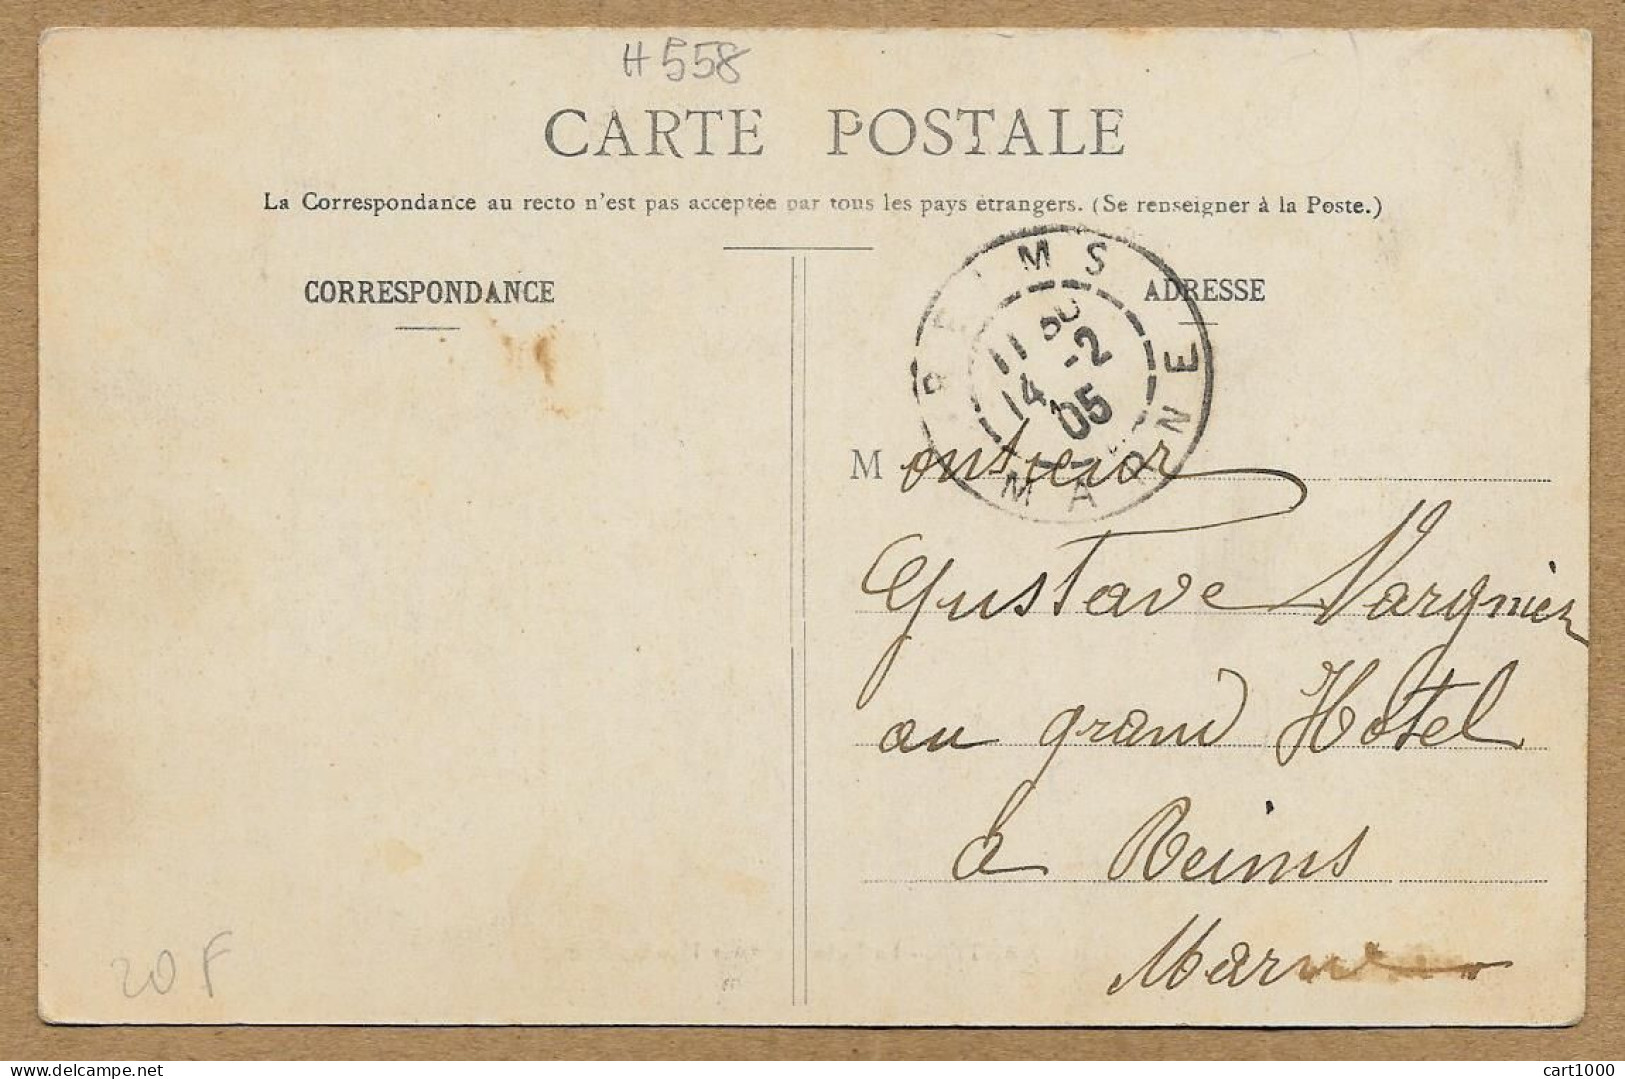 H 558
CARTE POSTALE
La Correspondance au recto n'est pas acceptée par tous les pays étrangers. (Se renseigner à la Poste.)
CORRESPONDANCE
ADRESSE
REIMS
11 30
14 -2
05
MARNE
Monsieur
Gustave Vargnier
au grand Hotel
à Reims
Marne
20 F
delcampe.net
cart1000